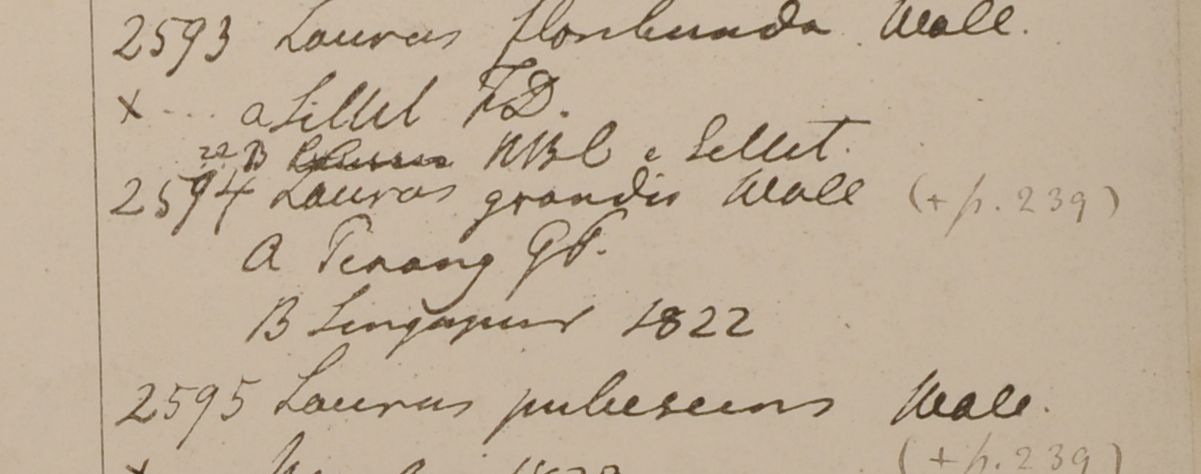 2593 Laurus floribunda Wall.
x .... a Sillet FD.
B HBC e Sillet.
2594 Laurus grandis Wall (+ p. 239)
A Penang GP.
B Singapur 1822
2595 Laurus pubescens Wall.
(+ p. 239)